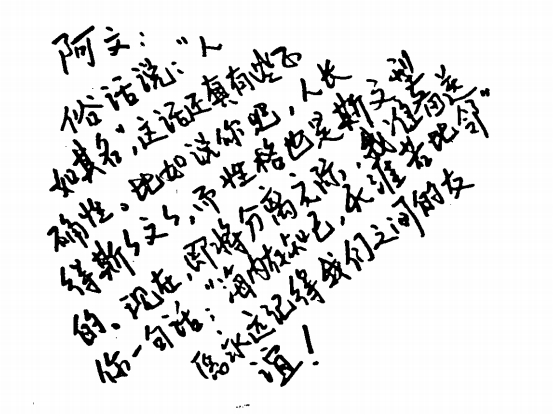 阿文：
俗话说："人
如其名"，这话还真有些正
确性。比如说你吧，人长
得斯々文々，而性格也是斯文型
的。现在，即将分离之际，我准备送
你一句话："海内存知己，天涯若比邻"
愿永远记得我们之间的友
谊！